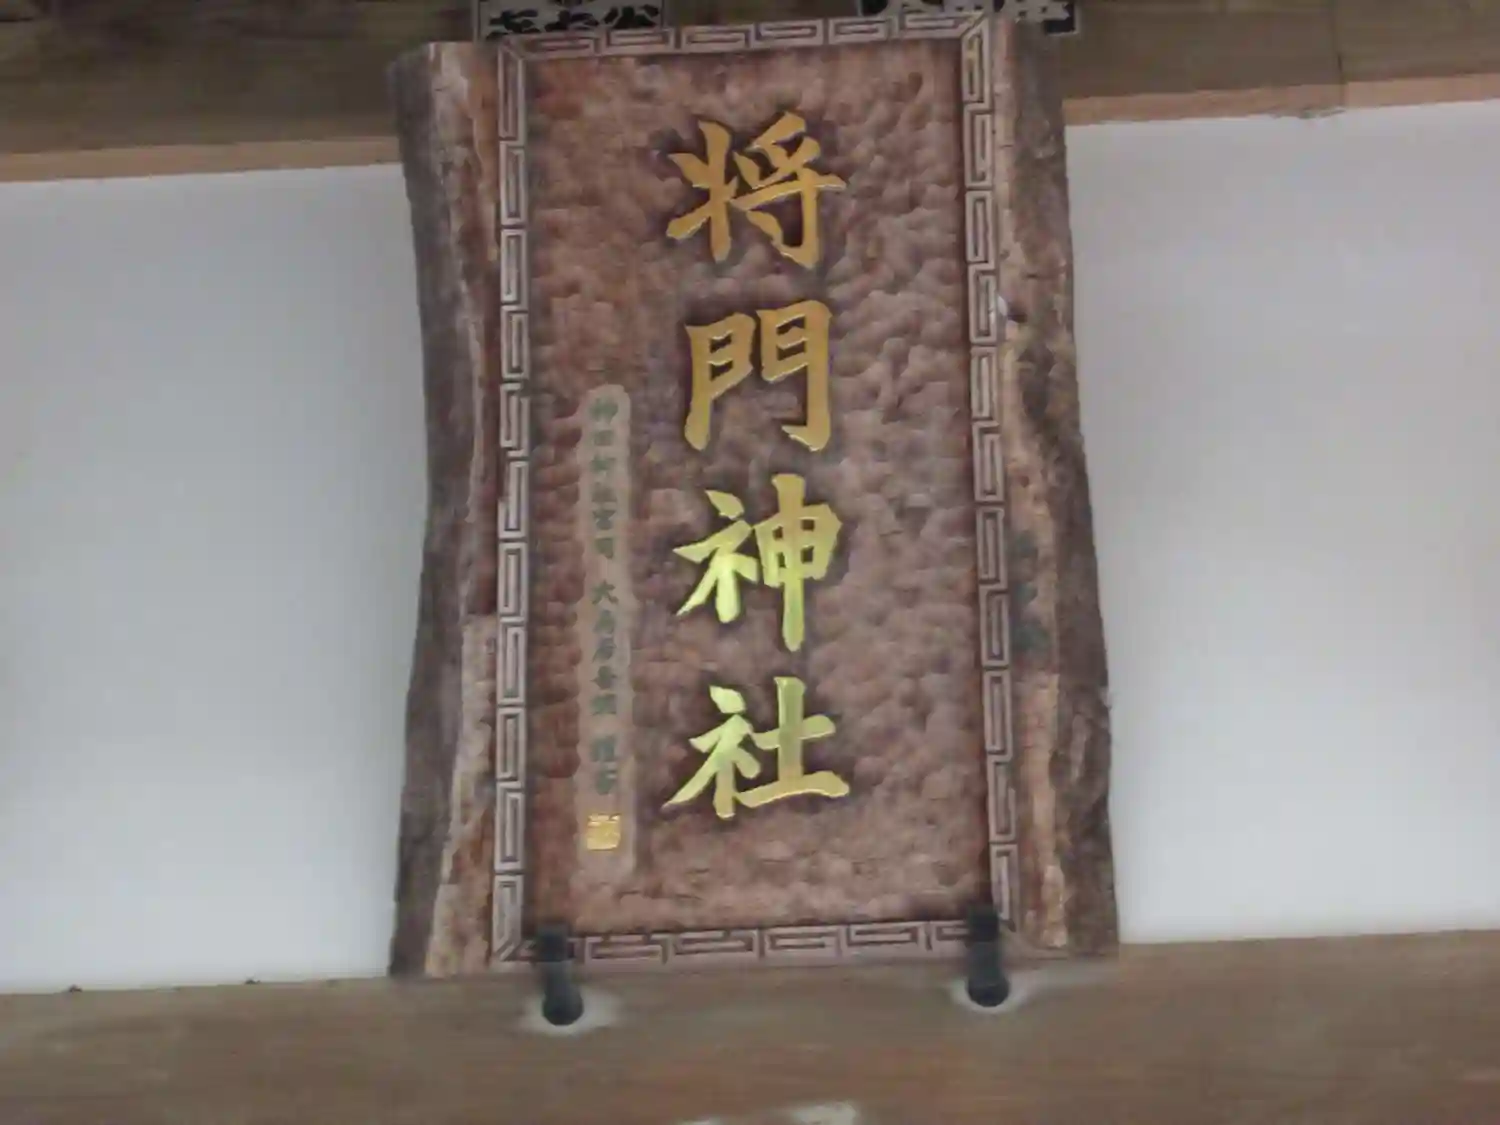 将門神社
神田神社宮司 大鳥居信史 謹書